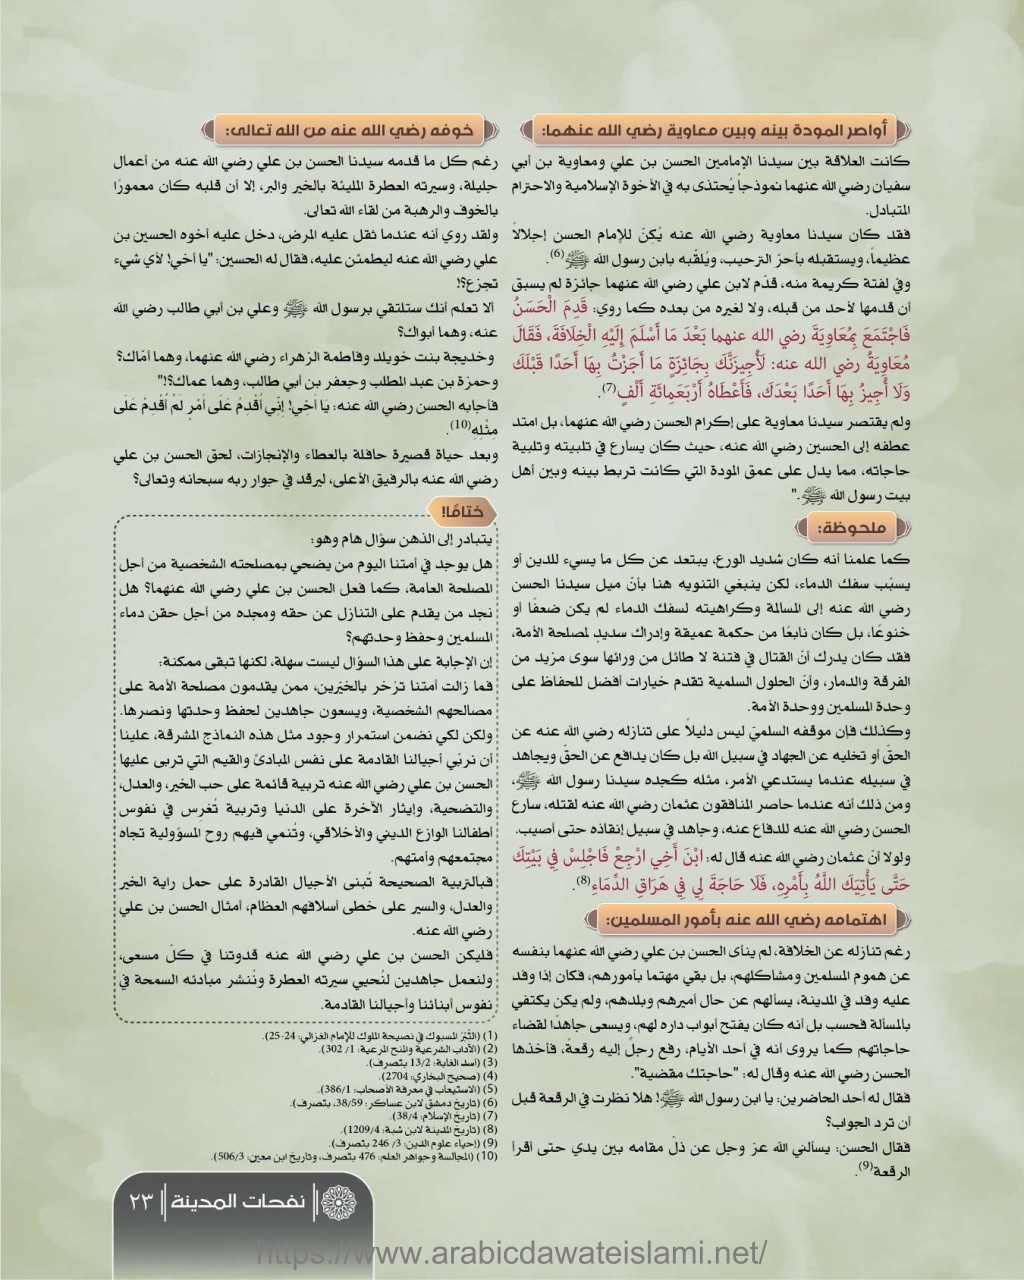 أواصر المودة بينه وبين معاوية رضي الله عنهما:
كانت العلاقة بين سيدنا الإمامين الحسن بن علي ومعاوية بن أبي
سفيان رضي الله عنهما نموذجاً يُحتذى به في الأخوة الإسلامية والاحترام
المتبادل.
فقد كان سيدنا معاوية رضي الله عنه يُكِنّ للإمام الحسن إجلالاً
عظيماً، ويستقبله بأحرّ الترحيب، ويُلقّبه بابن رسول الله ﷺ(6).
وفي لفتة كريمة منه، قدّم لابن علي رضي الله عنهما جائزة لم يسبق
أن قدمها لأحد من قبله، ولا لغيره من بعده كما روي: قَدِمَ الْحَسَنُ
فَاجْتَمَعَ بِمُعَاوِيَةَ رضي الله عنهما بَعْدَ مَا أَسْلَمَ إِلَيْهِ الْخِلَافَةَ، فَقَالَ
مُعَاوِيَةُ رضي الله عنه: لَأُجِيزَنَّكَ بِجَائِزَةٍ مَا أَجَزْتُ بِهَا أَحَدًا قَبْلَكَ
وَلَا أُجِيزُ بِهَا أَحَدًا بَعْدَكَ، فَأَعْطَاهُ أَرْبَعَمِائَةِ أَلْفٍ(7).
ولم يقتصر سيدنا معاوية على إكرام الحسن رضي الله عنهما، بل امتد
عطفه إلى الحسين رضي الله عنه، حيث كان يسارع في تلبيته وتلبية
حاجاته، مما يدل على عمق المودة التي كانت تربط بينه وبين أهل
بيت رسول الله ﷺ."
ملحوظة:
كما علمنا أنه كان شديد الورع، يبتعد عن كل ما يسيء للدين أو
يسبّب سفك الدماء، لكن ينبغي التنويه هنا بأنّ ميل سيدنا الحسن
رضي الله عنه إلى المسالمة وكراهيته لسفك الدماء لم يكن ضعفًا أو
خنوعًا، بل كان نابعًا من حكمة عميقة وإدراك سديدٍ لمصلحة الأمة،
فقد كان يدرك أنّ القتال في فتنة لا طائل من ورائها سوى مزيد من
الفرقة والدمار، وأنّ الحلول السلمية تقدم خيارات أفضل للحفاظ على
وحدة المسلمين ووحدة الأمة.
وكذلك فإن موقفه السلميّ ليس دليلاً على تنازله رضي الله عنه عن
الحقّ أو تخليه عن الجهاد في سبيل الله بل كان يدافع عن الحقّ ويجاهد
في سبيله عندما يستدعي الأمر، مثله كجده سيدنا رسول الله ﷺ،
ومن ذلك أنه عندما حاصر المنافقون عثمان رضي الله عنه لقتله، سارع
الحسن رضي الله عنه للدفاع عنه، وجاهد في سبيل إنقاذه حتى أصيب.
ولولا أنّ عثمان رضي الله عنه قال له: ابْنَ أَخِي ارْجِعْ فَاجْلِسْ فِي بَيْتِكَ
حَتَّى يَأْتِيَكَ اللَّهُ بِأَمْرِهِ، فَلَا حَاجَةَ لِي فِي هَرَاقِ الدِّمَاءِ(8).
اهتمامه رضي الله عنه بأمور المسلمين:
رغم تنازله عن الخلافة، لم ينأى الحسن بن علي رضي الله عنهما بنفسه
عن هموم المسلمين ومشاكلهم، بل بقي مهتما بأمورهم، فكان إذا وفد
عليه وفد في المدينة، يسألهم عن حال أميرهم وبلدهم، ولم يكن يكتفي
بالمسألة فحسب بل أنه كان يفتح أبواب داره لهم، ويسعى جاهدًا لقضاء
حاجاتهم كما يروى أنه في أحد الأيام، رفع رجلٌ إليه رقعةً، فأخذها
الحسن رضي الله عنه وقال له: "حاجتك مقضية".
فقال له أحد الحاضرين: يا ابن رسول الله ﷺ! هلا نظرت في الرقعة قبل
أن ترد الجواب؟
فقال الحسن: يسألني الله عز وجل عن ذلّ مقامه بين يدي حتى أقرأ
الرقعة(9).
خوفه رضي الله عنه من الله تعالى:
رغم كل ما قدمه سيدنا الحسن بن علي رضي الله عنه من أعمال
جليلة، وسيرته العطرة المليئة بالخير والبر، إلا أن قلبه كان معمورًا
بالخوف والرهبة من لقاء الله تعالى.
ولقد روي أنه عندما ثقل عليه المرض، دخل عليه أخوه الحسين بن
علي رضي الله عنه ليطمئن عليه، فقال له الحسين: "يا أخي! لأي شيء
تجزع؟!
ألا تعلم أنك ستلتقي برسول الله ﷺ وعلي بن أبي طالب رضي الله
عنه، وهما أبواك؟
وخديجة بنت خويلد وفاطمة الزهراء رضي الله عنهما، وهما أمّاك؟
وحمزة بن عبد المطلب وجعفر بن أبي طالب، وهما عماك؟!"
فأجابه الحسن رضي الله عنه: يَا أَخِي! إِنِّي أُقْدِمُ عَلَى أَمْرٍ لَمْ أُقْدِمْ عَلَى
مِثْلِهِ(10).
وبعد حياة قصيرة حافلة بالعطاء والإنجازات، لحق الحسن بن علي
رضي الله عنه بالرفيق الأعلى، ليرقد في جوار ربه سبحانه وتعالى؟
ختامًا!
يتبادر إلى الذهن سؤال هام وهو:
هل يوجد في أمتنا اليوم من يضحي بمصلحته الشخصية من أجل
المصلحة العامة، كما فعل الحسن بن علي رضي الله عنهما؟ هل
نجد من يقدم على التنازل عن حقه ومجده من أجل حقن دماء
المسلمين وحفظ وحدتهم؟
إن الإجابة على هذا السؤال ليست سهلة، لكنها تبقى ممكنة:
فما زالت أمتنا تزخر بالخيّرين، ممن يقدمون مصلحة الأمة على
مصالحهم الشخصية، ويسعون جاهدين لحفظ وحدتها ونصرها.
ولكن لكي نضمن استمرار وجود مثل هذه النماذج المشرقة، علينا
أن نربّي أجيالنا القادمة على نفس المبادئ والقيم التي تربى عليها
الحسن بن علي رضي الله عنه تربية قائمة على حب الخير، والعدل،
والتضحية، وإيثار الآخرة على الدنيا وتربية تُغرِس في نفوس
أطفالنا الوازع الديني والأخلاقي، وتُنمي فيهم روح المسؤولية تجاه
مجتمعهم وأمتهم.
فبالتربية الصحيحة تُبنى الأجيال القادرة على حمل راية الخير
والعدل، والسير على خطى أسلافهم العظام، أمثال الحسن بن علي
رضي الله عنه.
فليكن الحسن بن علي رضي الله عنه قدوتنا في كلّ مسعى،
ولنعمل جاهدين لنُحيي سيرته العطرة ونُنشر مبادئه السمحة في
نفوس أبنائنا وأجيالنا القادمة.
(1) (التّبْرُ المسبوك في نصيحة الملوك للإمام الغزالي: 24-25).
(2) (الآداب الشرعية والمنح المرعية: 1/ 302).
(3) (أسد الغابة: 13/2 بتصرف).
(4) (صحيح البخاري: 2704)
(5) (الاستيعاب في معرفة الأصحاب: 386/1).
(6) (تاريخ دمشق لابن عساكر: 38/59، بتصرف).
(7) (تاريخ الإسلام: 38/4).
(8) (تاريخ المدينة لابن شبة: 1209/4)
(9) (إحياء علوم الدين: 3/ 246 بتصرف).
(10) (المجالسة وجواهر العلم: 476 بتصرف، وتاريخ ابن معين: 506/3).
نفحات المدينة ٢٣
https://www.arabicdawateislami.net/